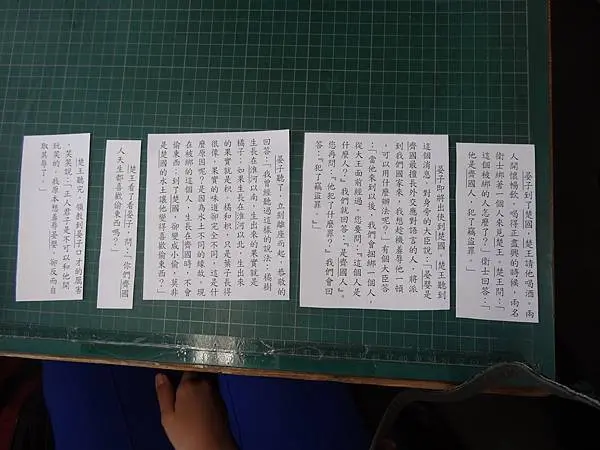 晏子到了楚國，楚王請他喝酒。兩
人開懷暢飲，喝得正盡興的時候，兩名
衛士綁著一個人來見楚王。楚王問：「
這個被綁的人怎麼了？」衛士回答：「
他是齊國人，犯了竊盜罪。」
晏子即將出使到楚國。楚王聽到
這個消息，對身旁的大臣說：「晏嬰是
齊國最擅長外交應對語言的人，將派
到我們國家來，我想趁機羞辱他一頓
，可以用什麼辦法呢？」有個大臣答
：「當他來到以後，我們會捆綁一個人，
從大王面前經過。您要問：『這個人是
什麼人？』我們就回答：『是齊國人』。
您再問：『他犯了什麼罪？』我們會回
答：『犯了竊盜罪。』」
晏子聽了，立刻離座而起，恭敬的
回答：「我曾經聽過這樣的說法，橘樹
生長在淮河以南，生出來的果實就是
橘子；如果生長在淮河以北，生出來
的果實就是枳。橘和枳，只是葉子長得
很像，果實的味道卻完全不同。這是什
麼原因呢？是因為水土不同的緣故。現
在被綁的這個人，生長在齊國時，不會
偷東西，到了楚國，卻變成小偷，莫非
是楚國的水土讓他變得喜歡偷東西？」
楚王看了看晏子，問：「你們齊國
人天生都喜歡偷東西嗎？」
楚王聽完，領教到晏子口才的厲害
，笑笑說：「正人君子是不可以和他開
玩笑的。我原本想羞辱晏嬰，卻反而自
取其辱了。」